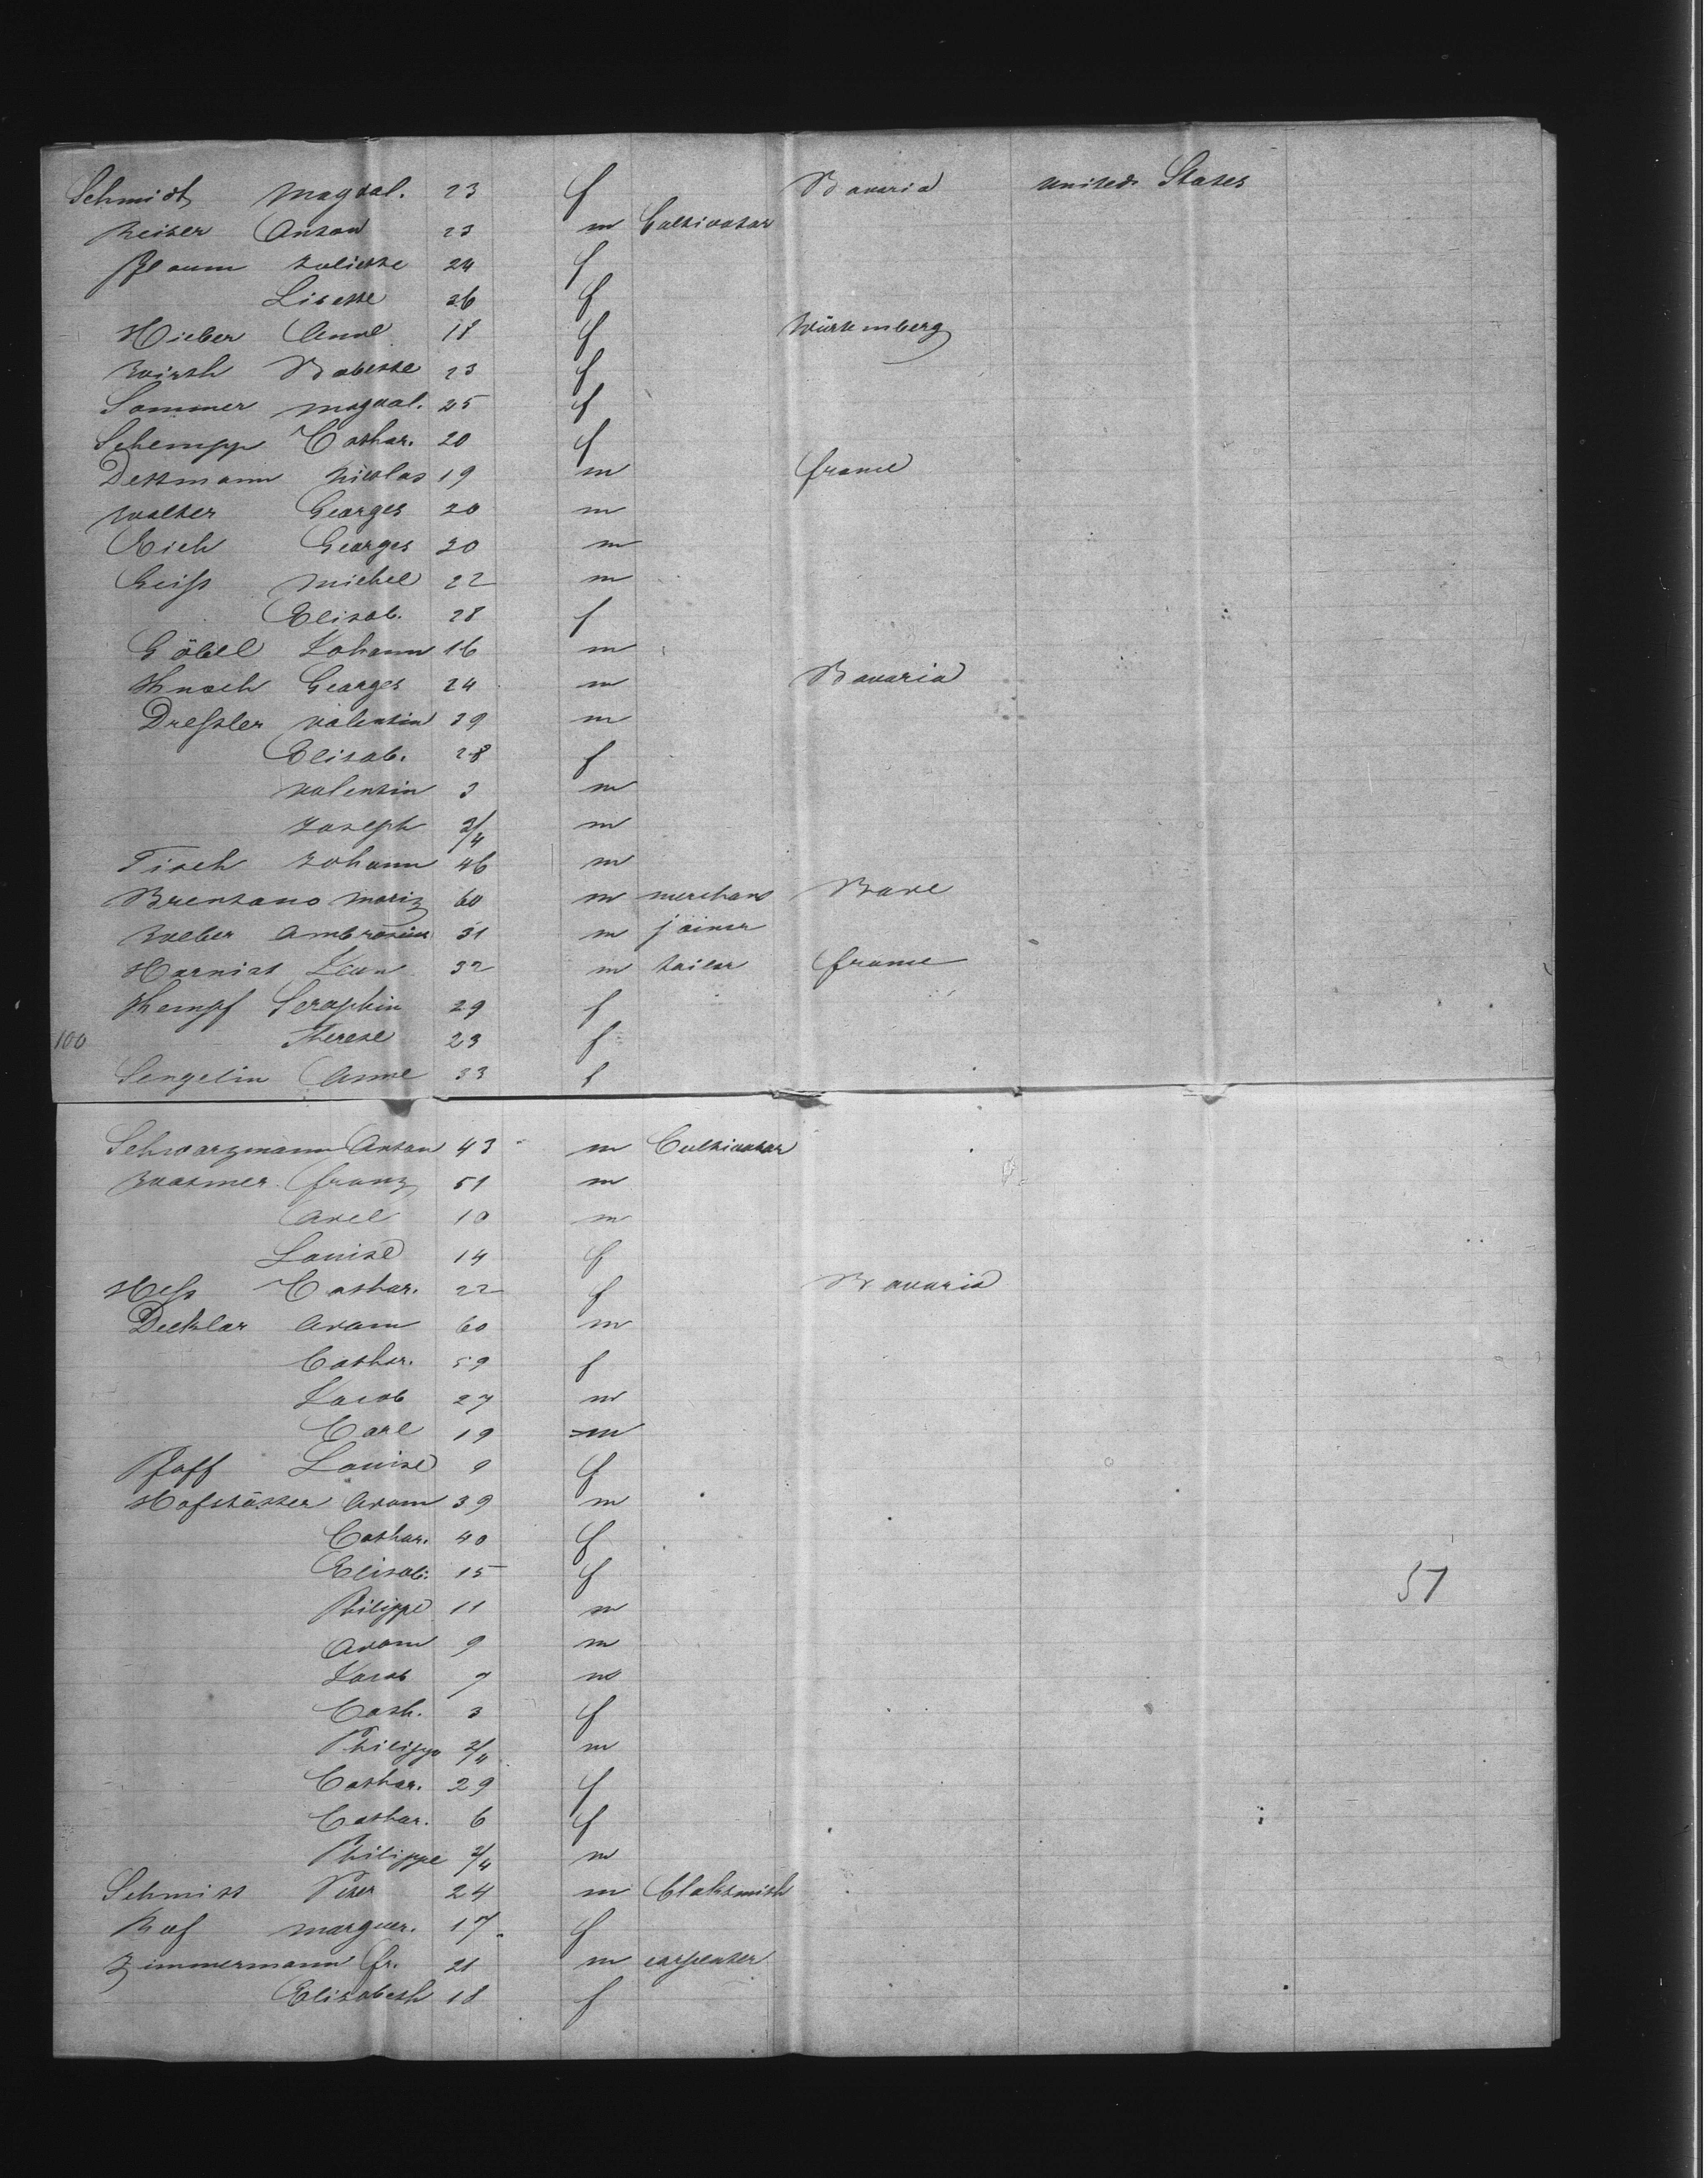 Schmidt Magdal. 23 f Bavaria united States
Reiser Anton 23 m Cultivator
Pflaum Juliette 24 f
Lisette 26 f
Hieber Anne 18 f Würtemberg
Wirth Babette 23 f
Sommer Magdal. 25 f
Schempp Cathar. 20 f
Dettmann Nicolas 19 m france
Walter Georges 20 m
Eich Georges 20 m
Geiss Michel 22 m
Elisab. 28 f
Göbel Johann 16 m
Knoch Georges 24 m Bavaria
Dressler Valentin 39 m
Elisab. 28 f
Valentin 3 m
Joseph 3/4 m
Tisch Johann 46 m
Brentano Moriz 60 m merchant Bade
Weber Ambrosius 31 m joiner
Harnist Jean 32 m tailor france
Kempf Seraphin 29 f
100 Therese 23 f
Sengelin Anne 33 f
Schwarzmann Anton 43 m Cultivator
Wasmer franz 51 m
Axel 10 m
Louise 14 f
Hess Cathar. 22 f Bavaria
Decklar Adam 60 m
Cathar. 59 f
Jacob 27 m
Carl 19 m
Pfaff Louise 9 f
Hofstätter Adam 39 m
Cathar. 40 f
Elisab. 15 f 57
Philippe 11 m
Adam 9 m
Jacob 7 m
Cath. 3 f
Philipp 3/4 m
Cathar. 29 f
Cathar. 6 f
Philippe 3/4 m
Schmitt Peter 24 m Blaksmith
Ruf marguer. 17 f
Zimmermann fr. 21 m carpenter
Elisabeth 18 f